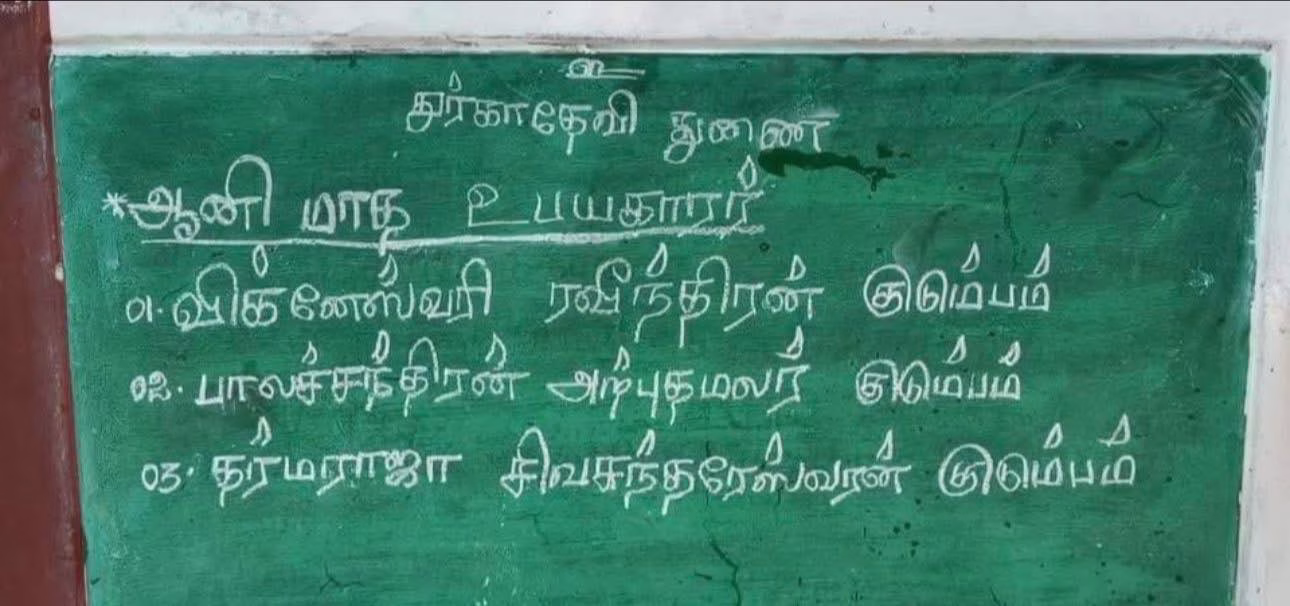 உ
துர்காதேவி துணை
*ஆனி மாத உபயகாரர்
01. விக்னேஸ்வரி ரவீந்திரன் குடும்பம்
02. பாலச்சந்திரன் அற்புதமலர் குடும்பம்
03. தர்மராஜா சிவசுந்தரேஸ்வரன் குடும்பம்